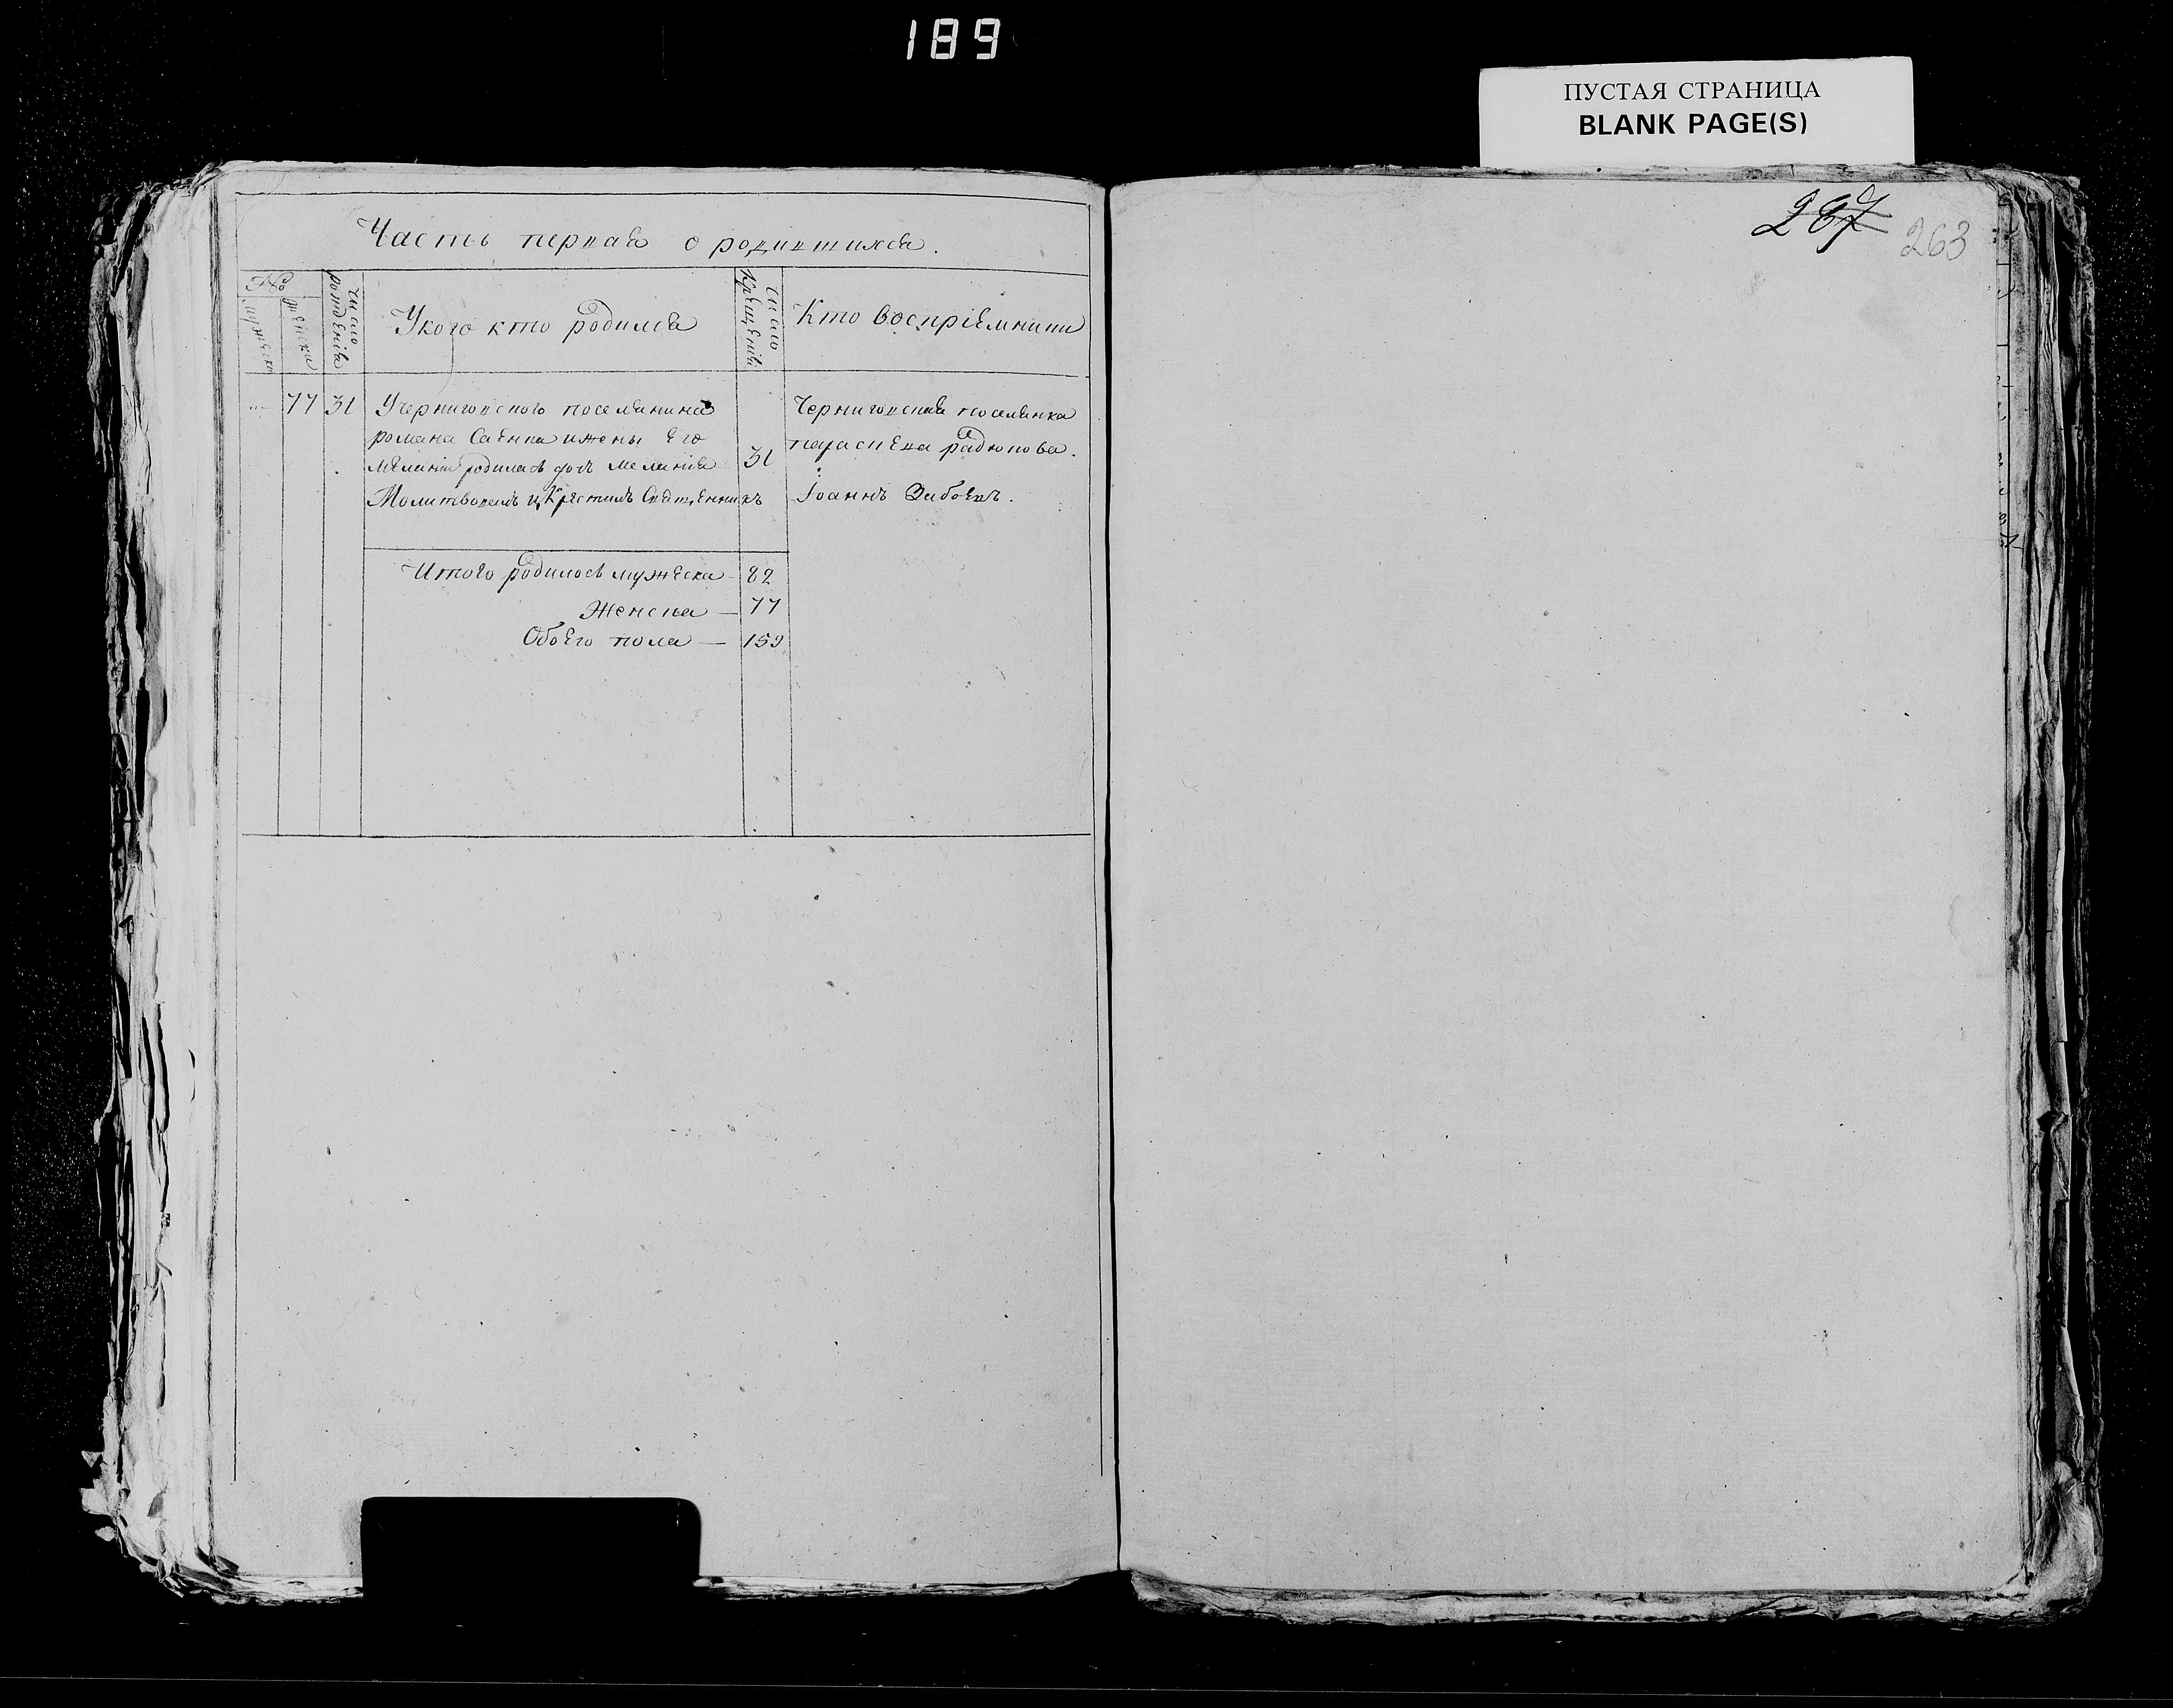 189
ПУСТАЯ СТРАНИЦА
BLANK PAGE(S)
287 263
Часть первая о родившихся.
№
мужеска
женска
число рожденія
У кого кто родился
число крещенія
Кто воспріемники
77 31 У черниговского поселянина
романа Саенка и жены его
меланіи родилась дочь меланія 31
Молитвовалъ и Крестилъ Священникъ
Черниговская поселянка
параскева радюкова.
Іоаннъ Зибоевъ.
Итого родилось мужеска 82
Женска — 77
Обоего пола — 159